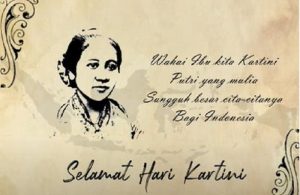 Wahai Ibu kita Kartini
Putri yang mulia
Sungguh besar cita-citanya
Bagi Indonesia
Selamat Hari Kartini